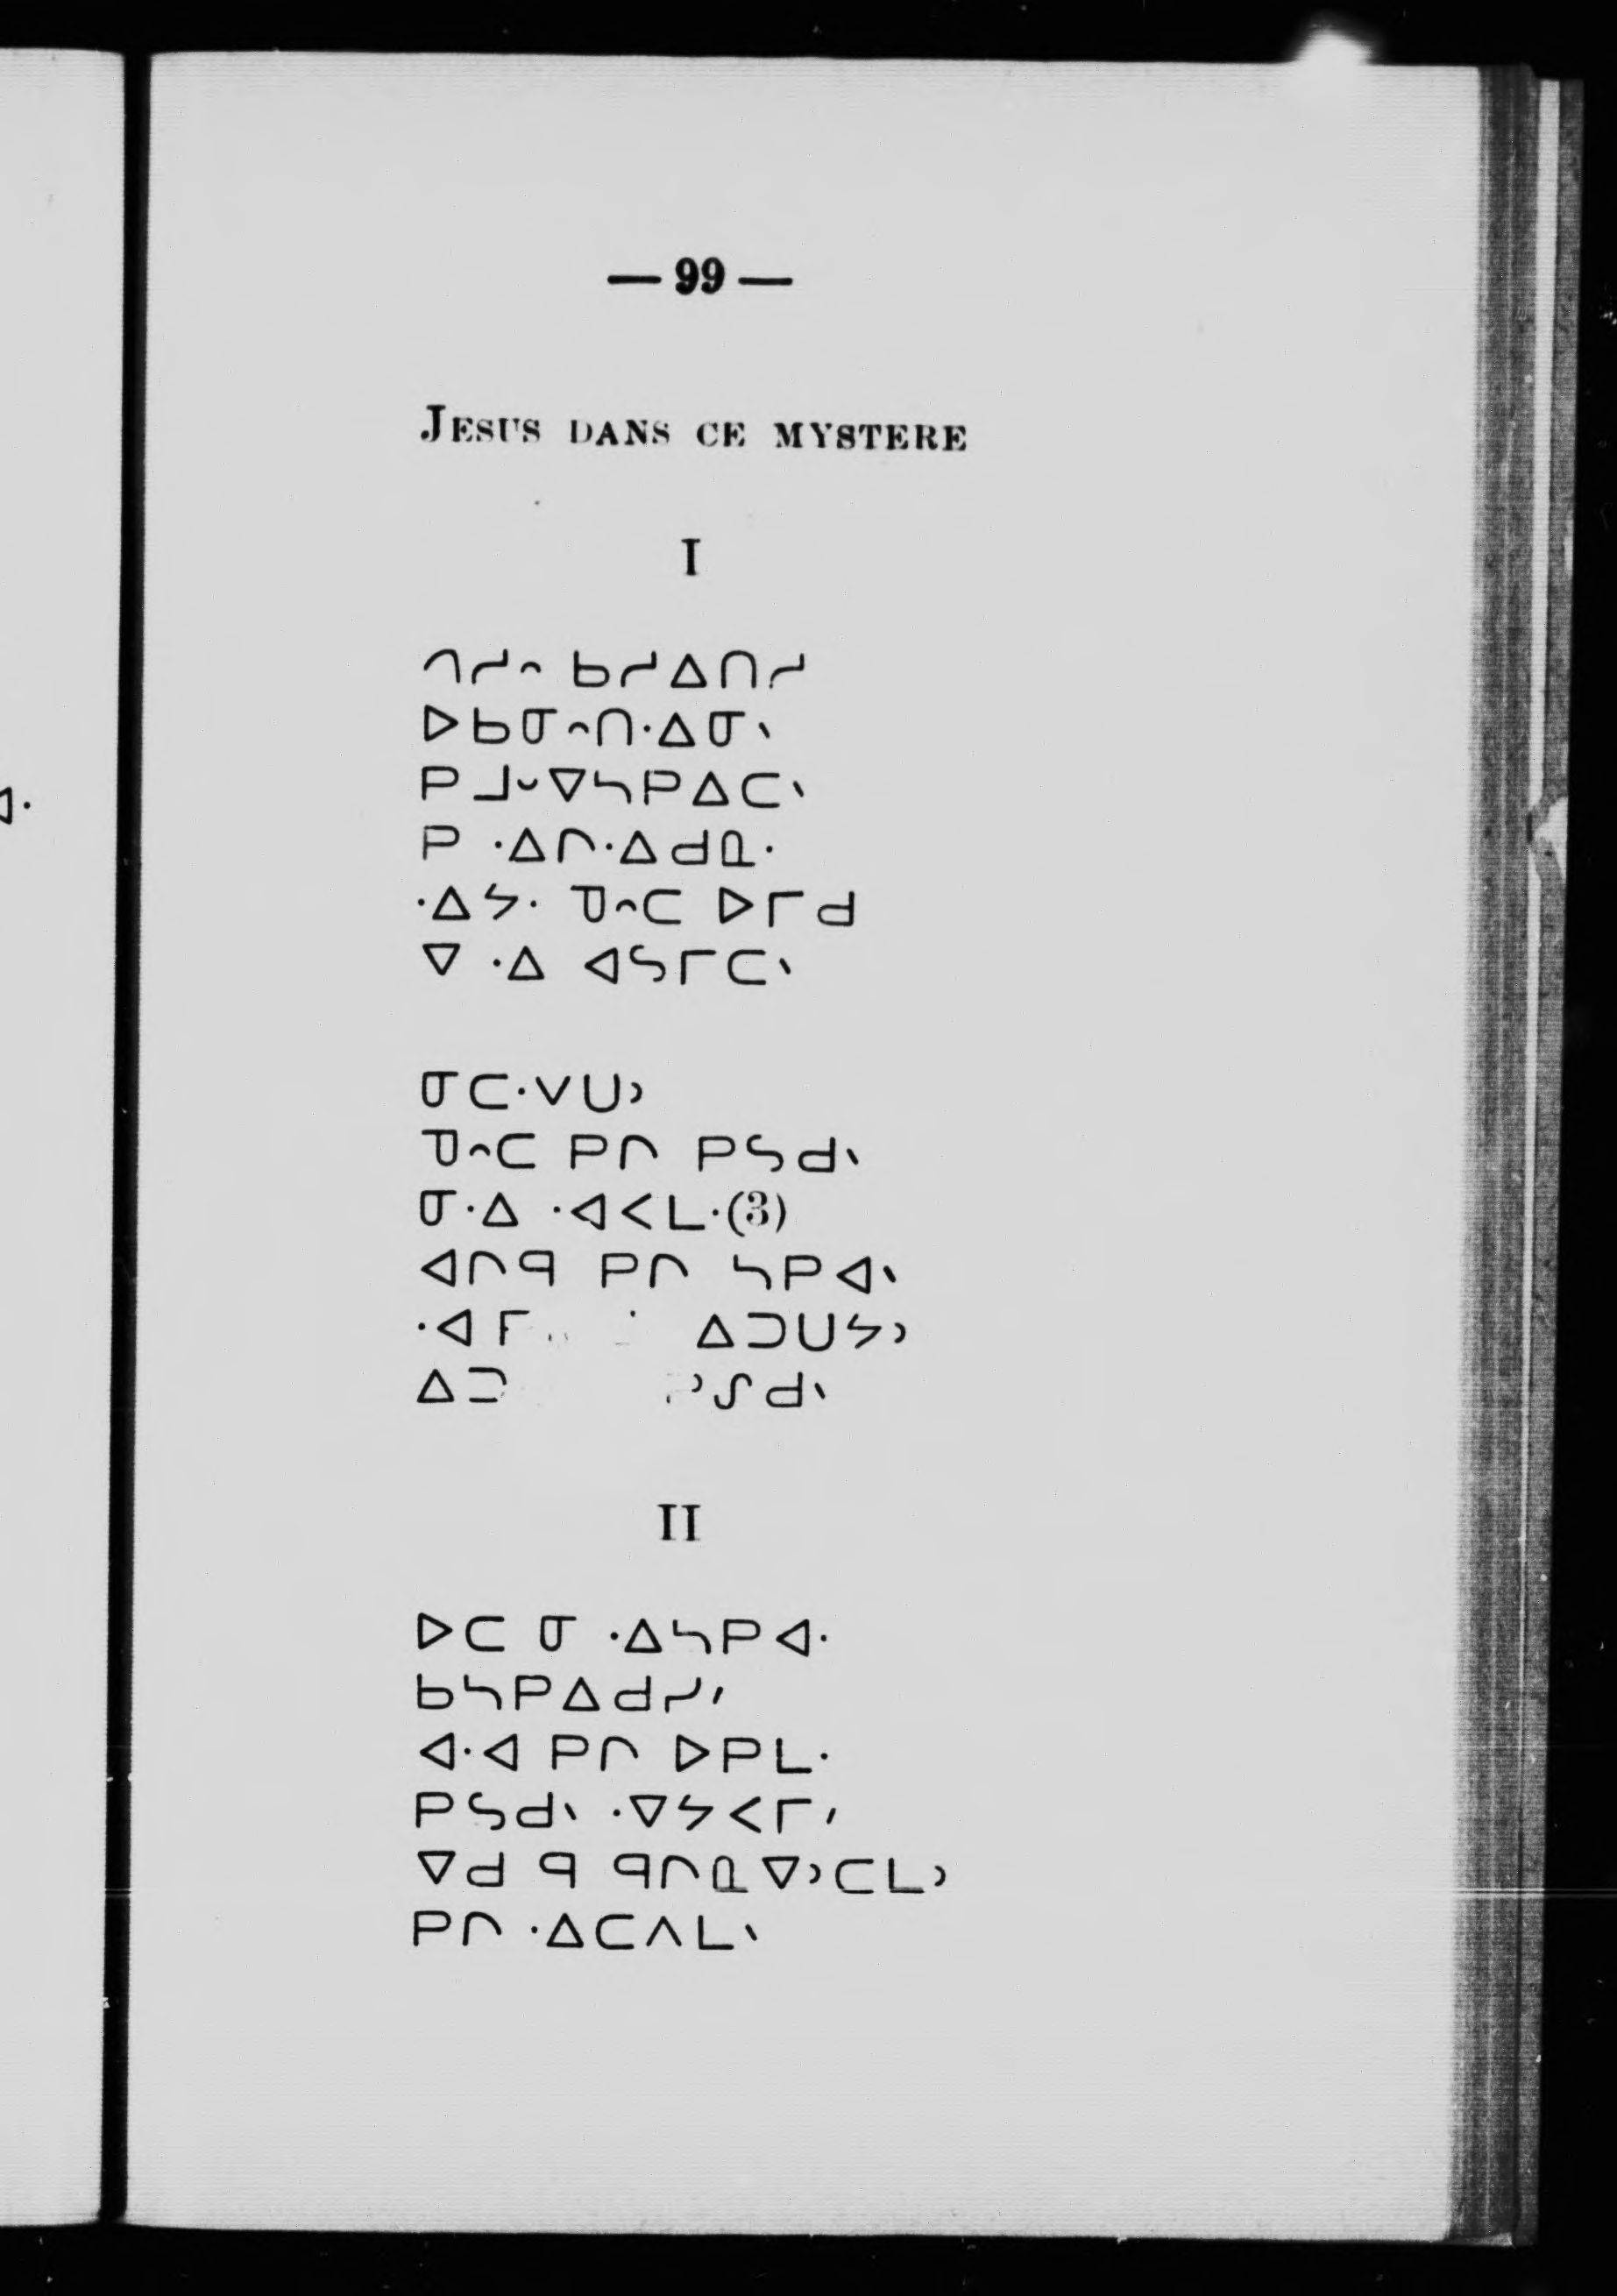 — 99 —
JESUS DANS CE MYSTERE
I
ᒉᓯᐢ ᑲᓯᐃᑎᓯ
ᐅᑲᓂᐢᑎᐧᐃᓂᐠ
ᑭ ᒧᐨᐁᓴᑭᐃᑕᐠ
ᑭ ᐧᐃᒋᐧᐃᑯᓇᐧ
ᐧᐃᔭᐧ ᑫᐢᑕ ᐅᒥᑯ
ᐁ ᐧᐃ ᐊᓴᒥᑕᐠ
ᓂᑕᐧᐯᑌᐣ
ᑫᐢᑕ ᑭᒋ ᑭᓴᑯᐠ
ᓂᐧᐃ ᐧᐊᐸᒪᐧ(3)
ᐊᒋᑫ ᑭᒋ ᓴᑭᐊᐠ
ᐃᑐᑌᔭᐣ
II
ᐅᑕ ᓂ ᐧᐃᓴᑭᐊᐧ
ᑲᓴᑭᐃᑯᓯᐟ
ᐊᐧᐊ ᑭᒋ ᐅᑭᒪᐧ
ᑭᓴᑯᐠ ᐧᐁᔭᐸᒥᐟ
ᐁᑯ ᑫ ᑫᒋᓇᐁᐣᑕᒪᐣ
ᑭᒋ ᐧᐃᑕᐱᒪᐠ